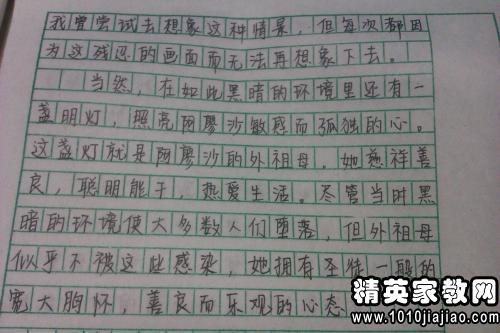 我曾尝试去想象这种情景，但每次都因
为这残忍的画面而无法再想象下去。
当然，在如此黑暗的环境里还有一
盏明灯，照亮阿廖沙敏感而孤独的心。
这盏灯就是阿廖沙的外祖母。她慈祥善
良，聪明能干，热爱生活。尽管当时黑
暗的环境使大多数人们堕落，但外祖母
似乎不被这些感染，她拥有圣徒一般的
宽大胸怀，善良而乐观的心态
精英家教网
www.1010jiajiao.com